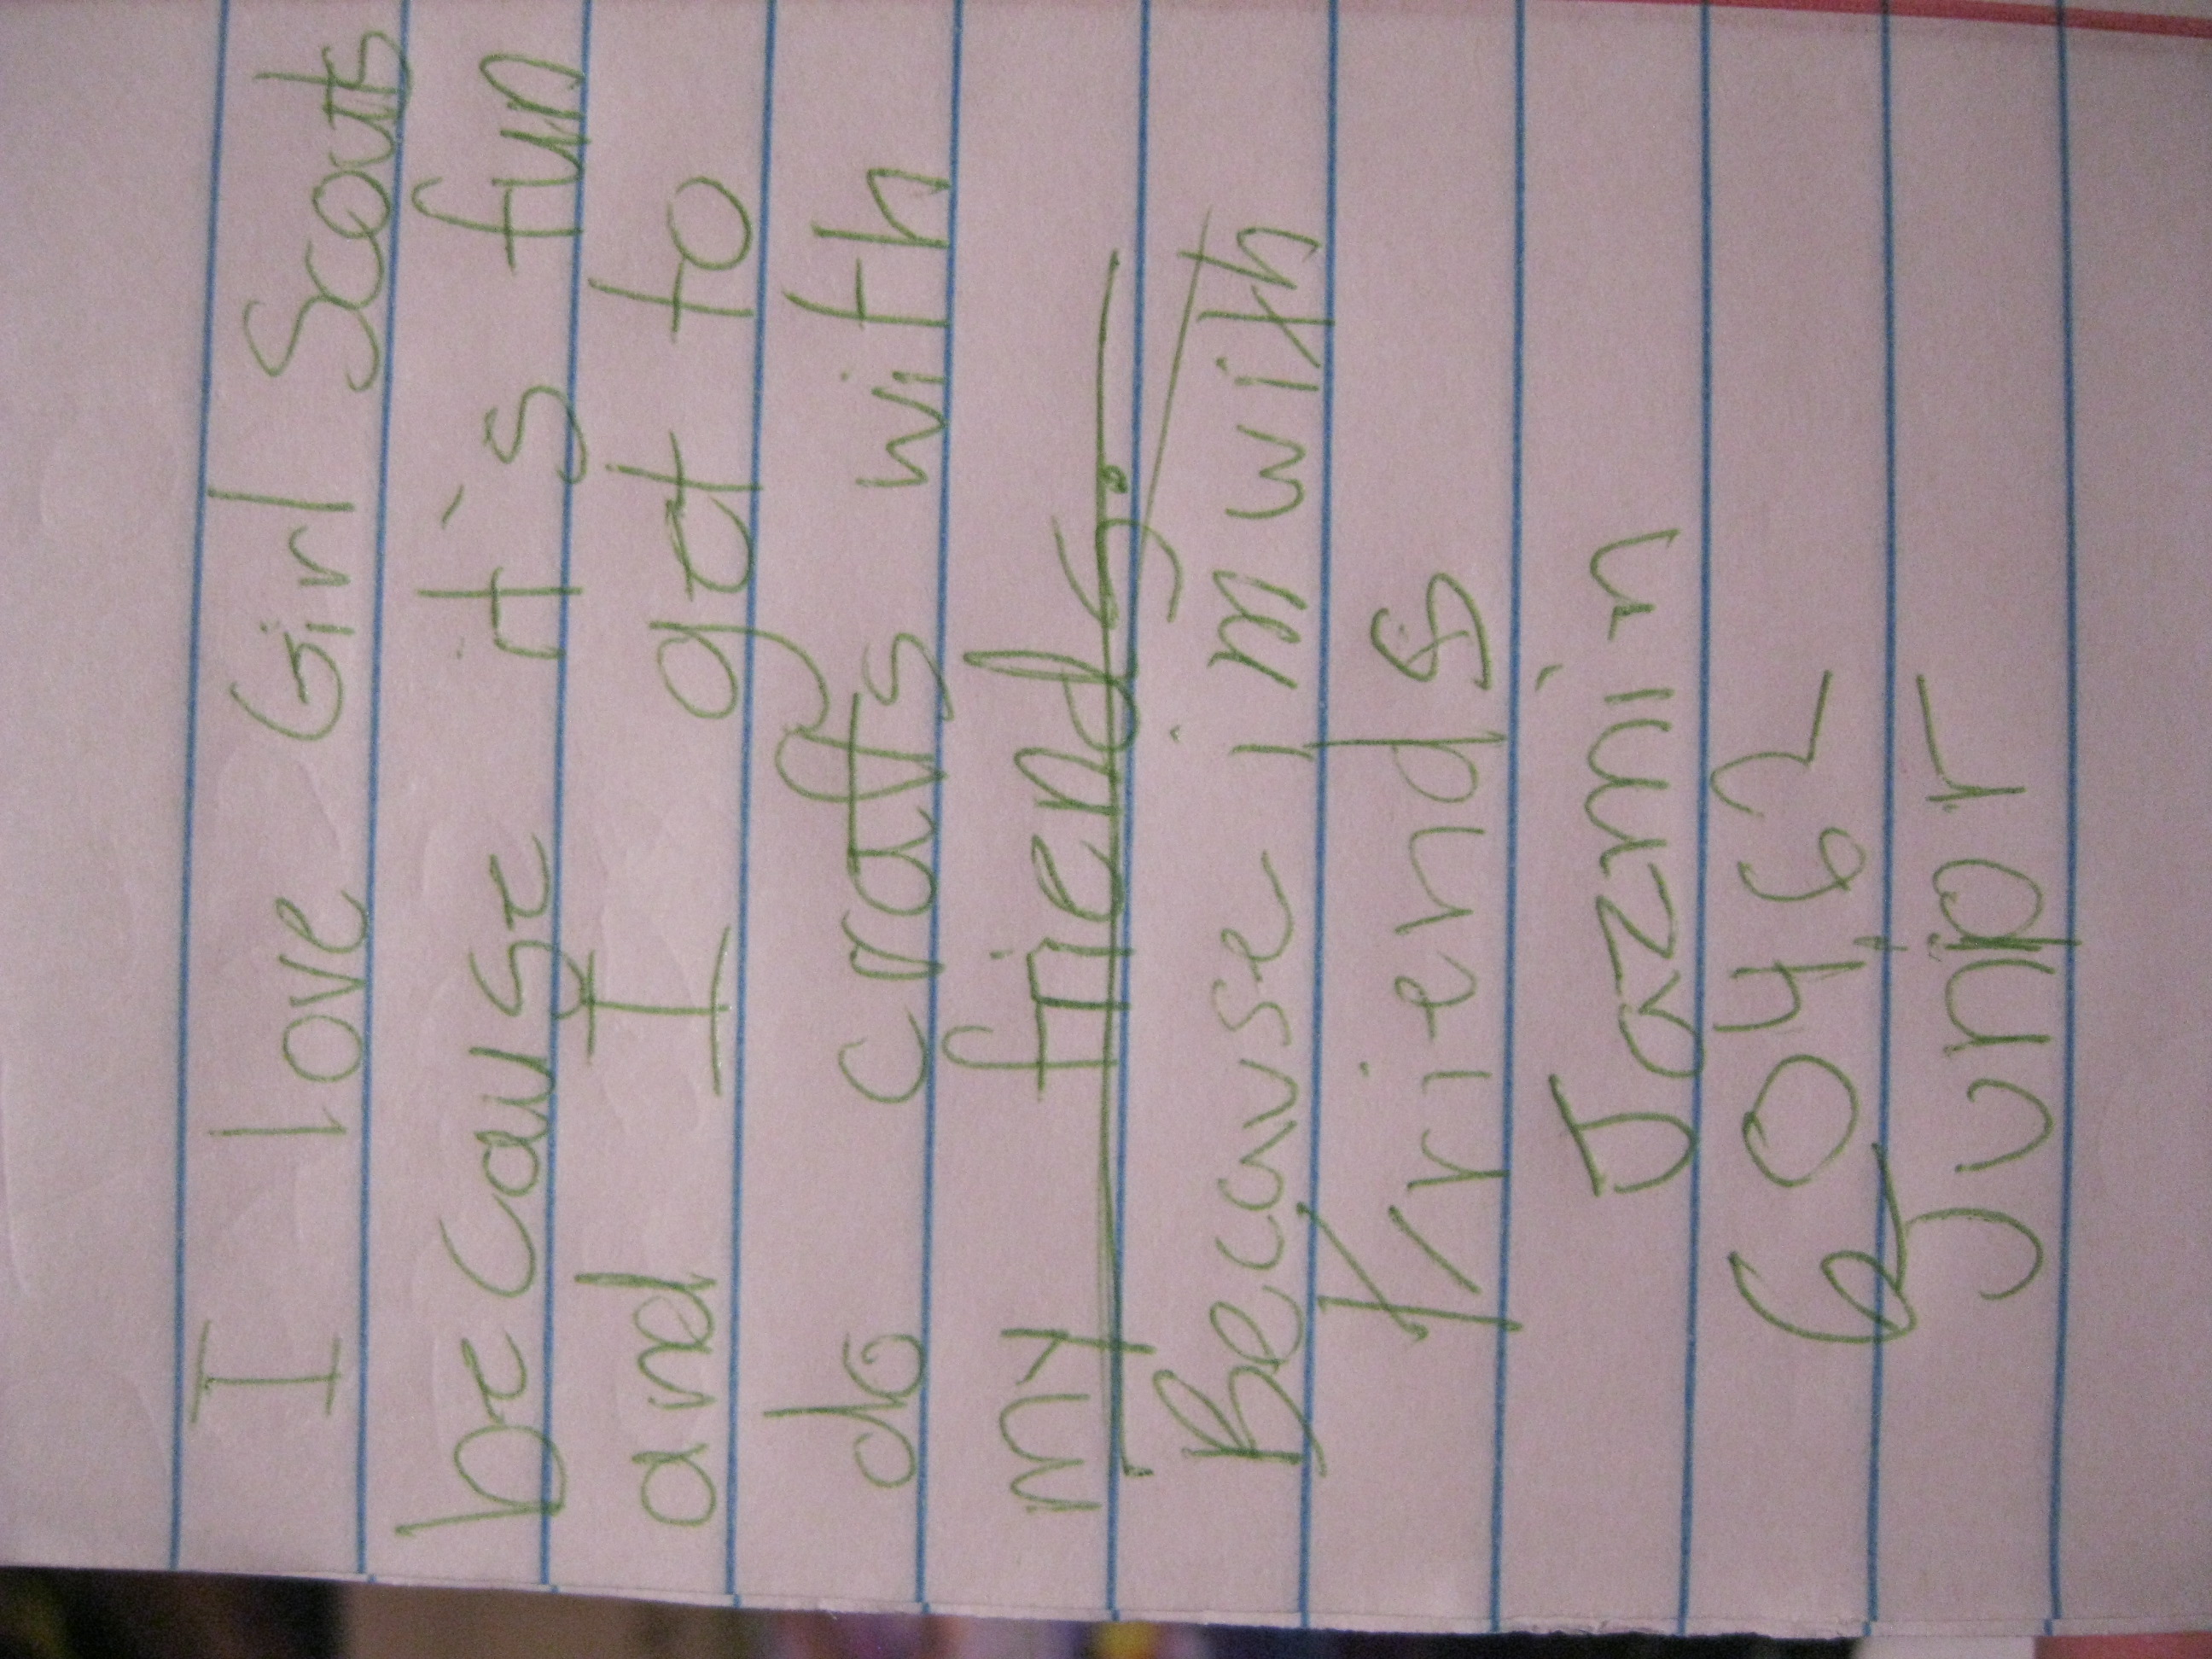 I love Girl Scouts
because it's fun
and I get to
do crafts with
my friends.
Because i'm with
friends
Jazmin
6042
Junior